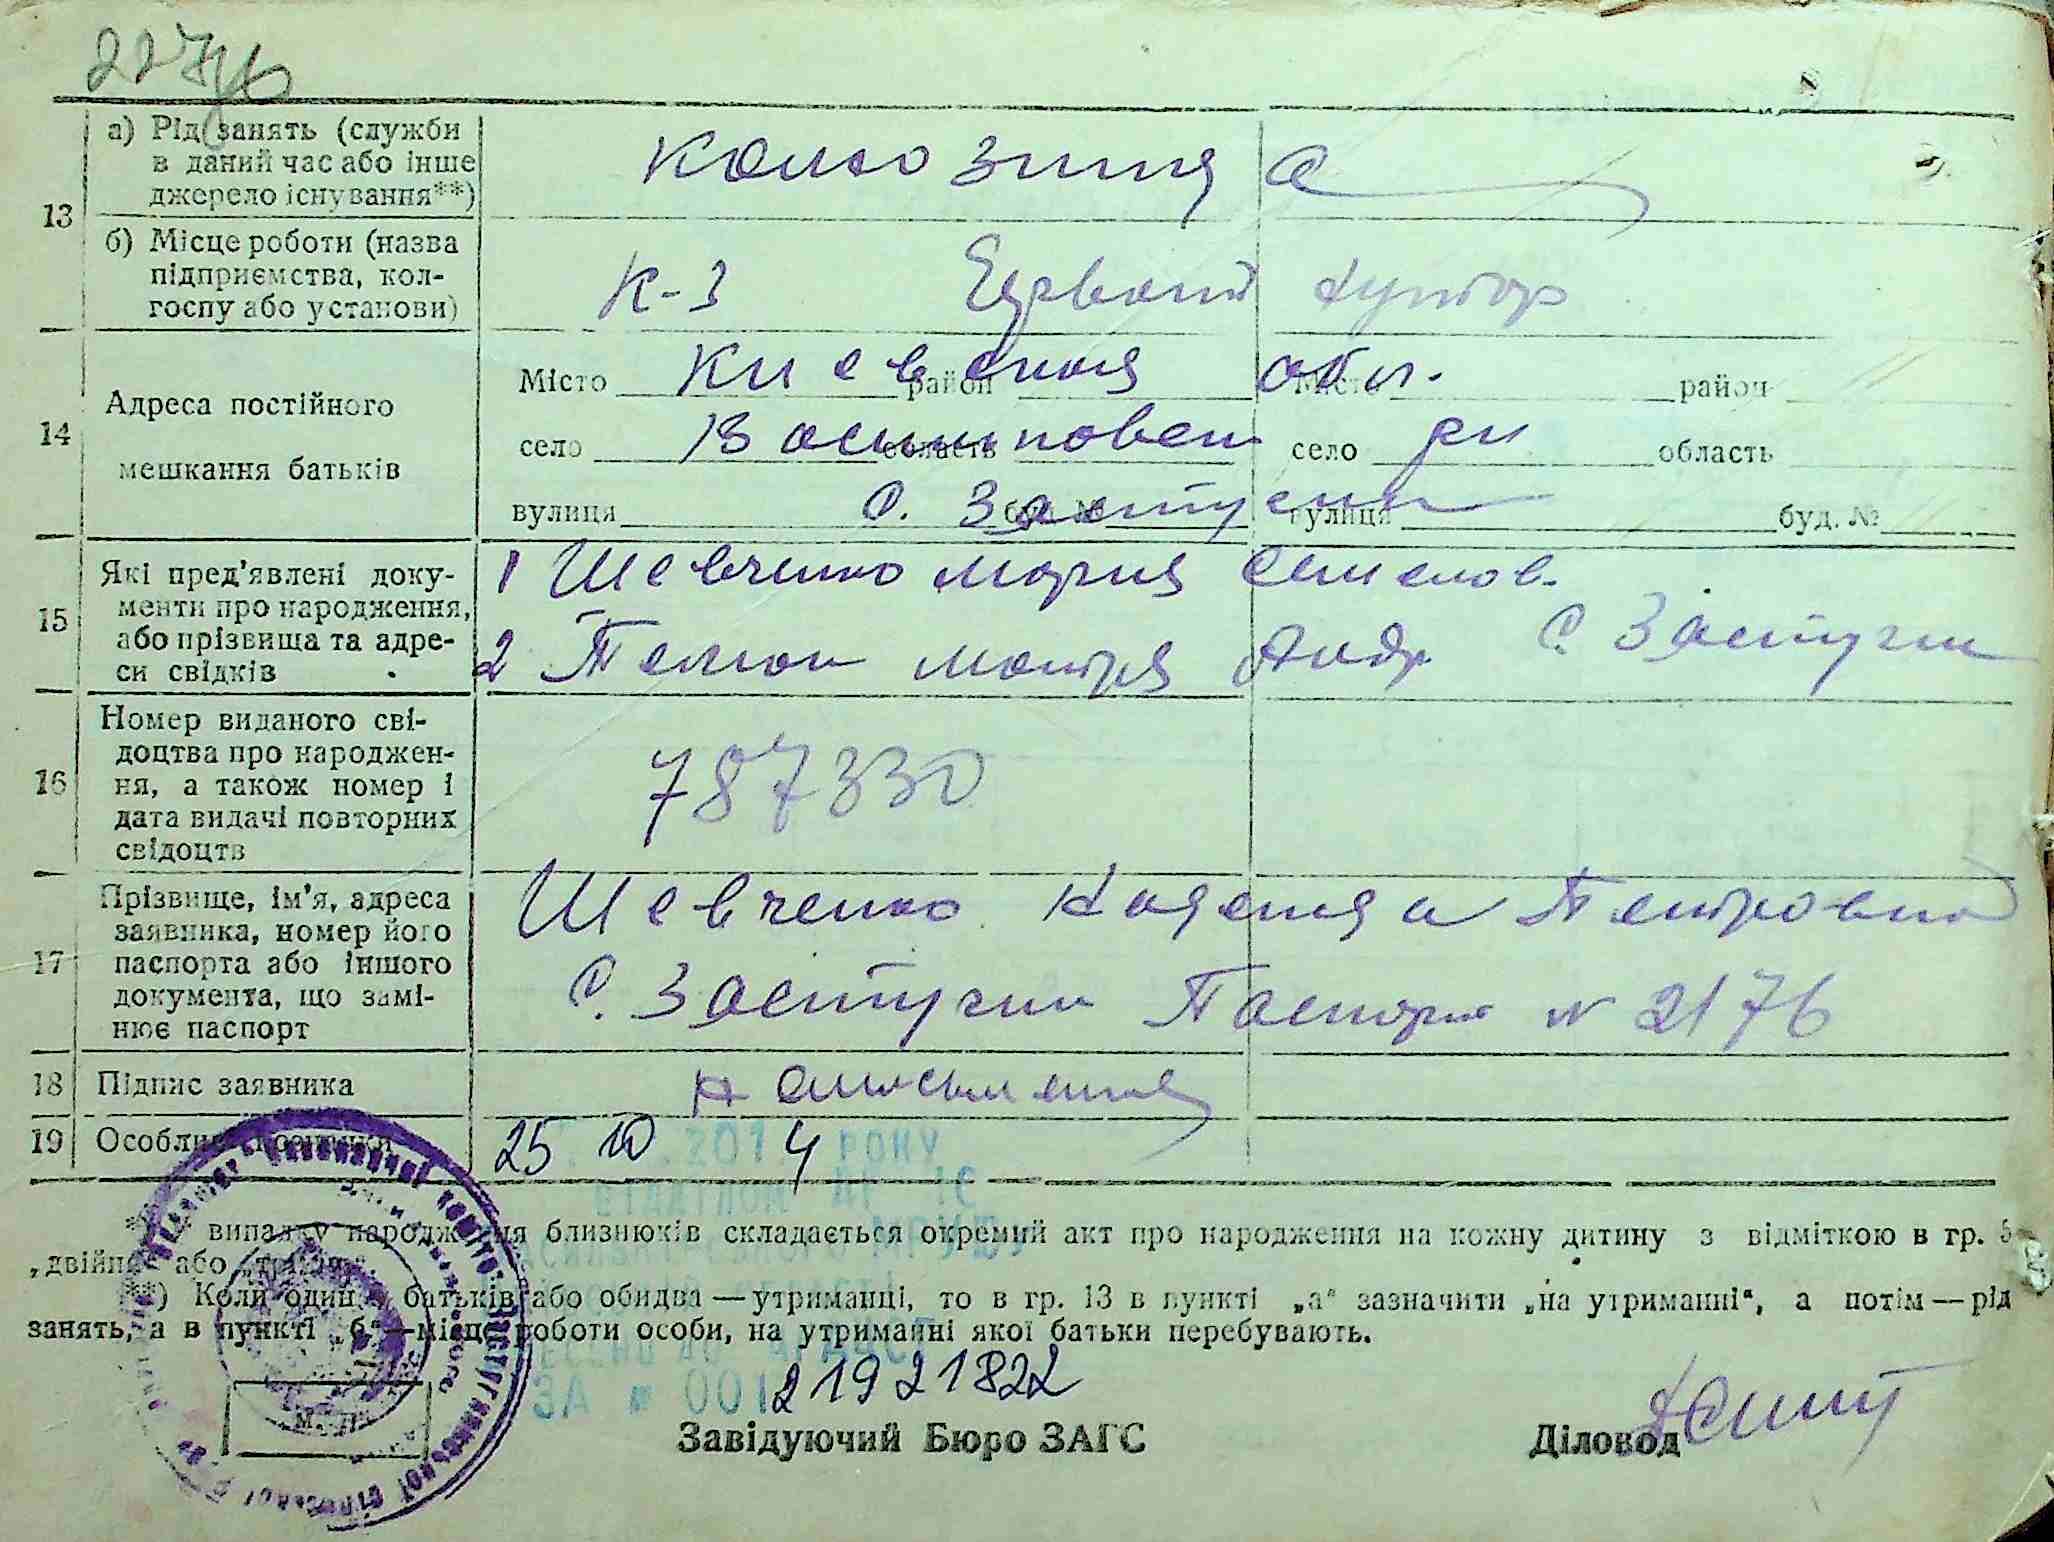 13
а) Рід занять (служби
в даний час або інше
джерело існування**)
б) Місце роботи (назва
підприємства, кол-
госпу або установи)
К-з
14
Адреса постійного
мешкання батьків
Місто Киевская район обл. Місто район
село Васильковск область село р-н область
вулиця с. Застугни буд. № вулиця буд. №
15
Які пред'явлені доку-
менти про народження,
або прізвища та адре-
си свідків
1 Шевченко Мария Семенов.
2 Андр. с. Застугни
16
Номер виданого сві-
доцтва про народжен-
ня, а також номер і
дата видачі повторних
свідоцтв
787330
17
Прізвище, ім'я, адреса
заявника, номер його
паспорта або іншого
документа, що замі-
нює паспорт
Шевченко Петровна
с. Застугни Паспорт № 2176
18 Підпис заявника
19
25 10 201 4 РОКУ
випадку народження близнюків складається окремий акт про народження на кожну дитину з відміткою в гр. 5
„двійня" або „трійня".
**) Коли один з батьків або обидва — утриманці, то в гр. 13 в пункті „а" зазначити „на утриманні", а потім — рід
занять, а в пункті „б" — місце роботи особи, на утриманні якої батьки перебувають.
ЗА № 00121921822
м. п.
Завідуючий Бюро ЗАГС
Діловод